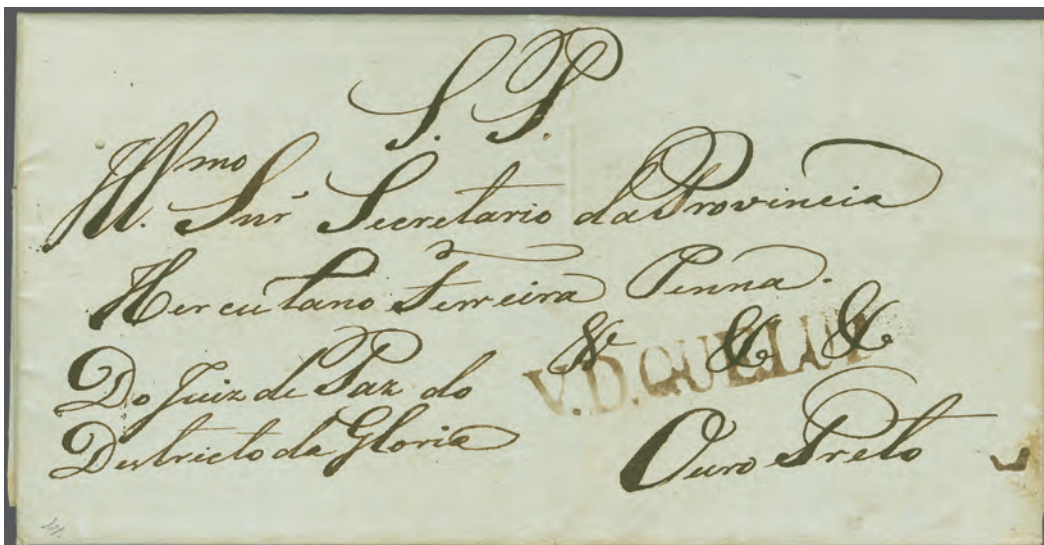 S. P.
Illmo. Snr Secretario da Provincia
Herculano Ferreira Penna.
& & &
V.D. QUELUZ
Do Juiz de Paz do
Destricto da Gloria
Ouro Preto